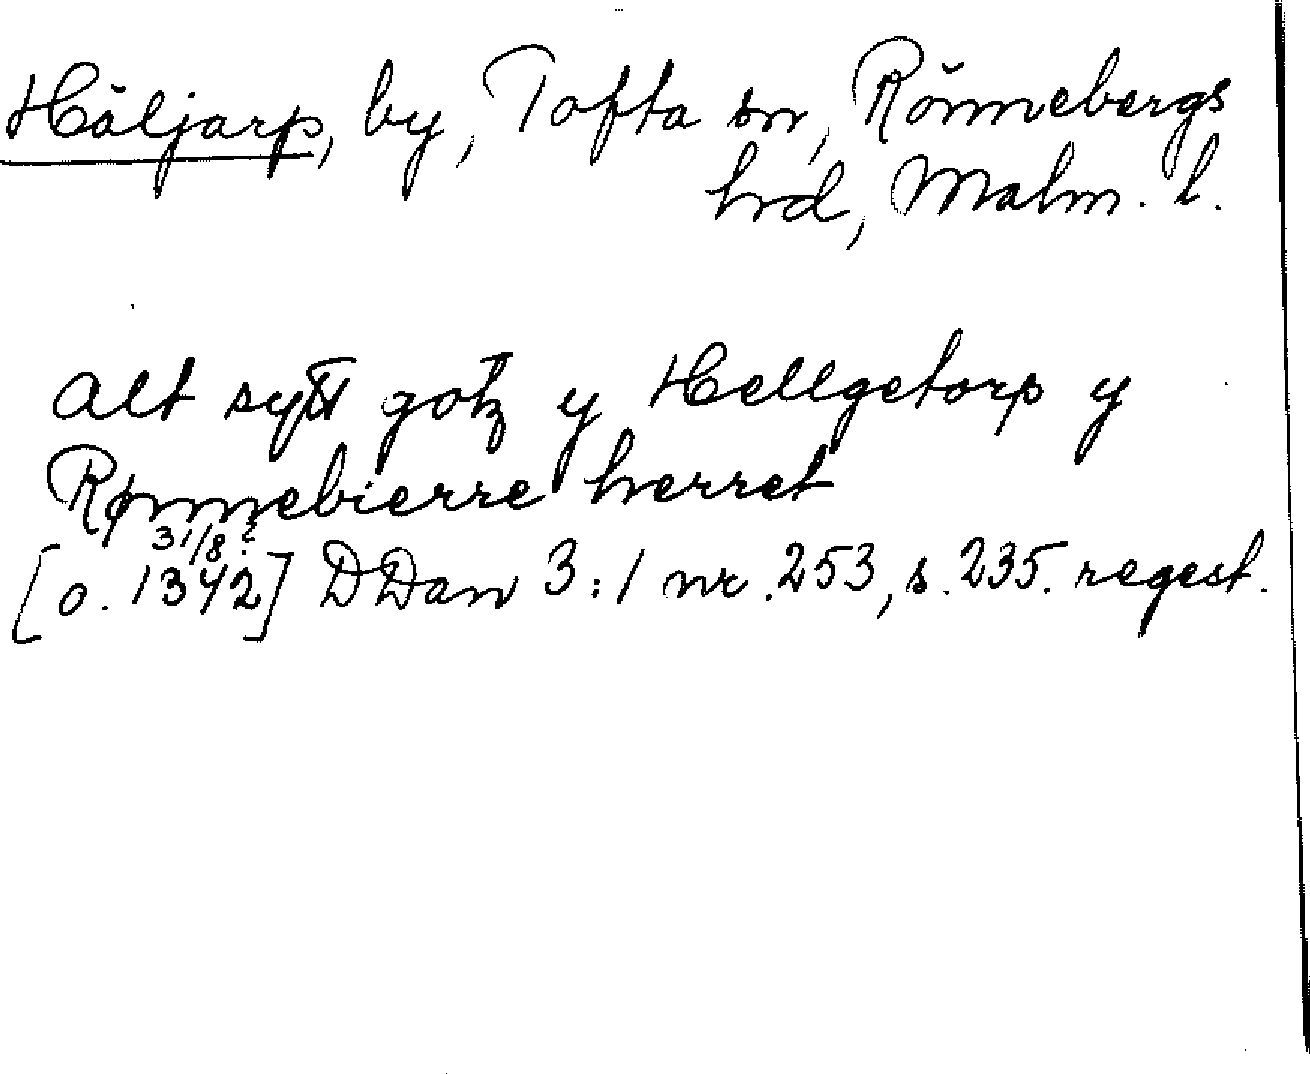 Häljarp, by, Tofta sn, Rönnebergs
hrd, Malm. l.
Alt sytt gotz y Hellgetorp y
Rønnebierre herret
31/8?
[o. 1342] DDan 3:1 nr. 253, s. 235. regest.